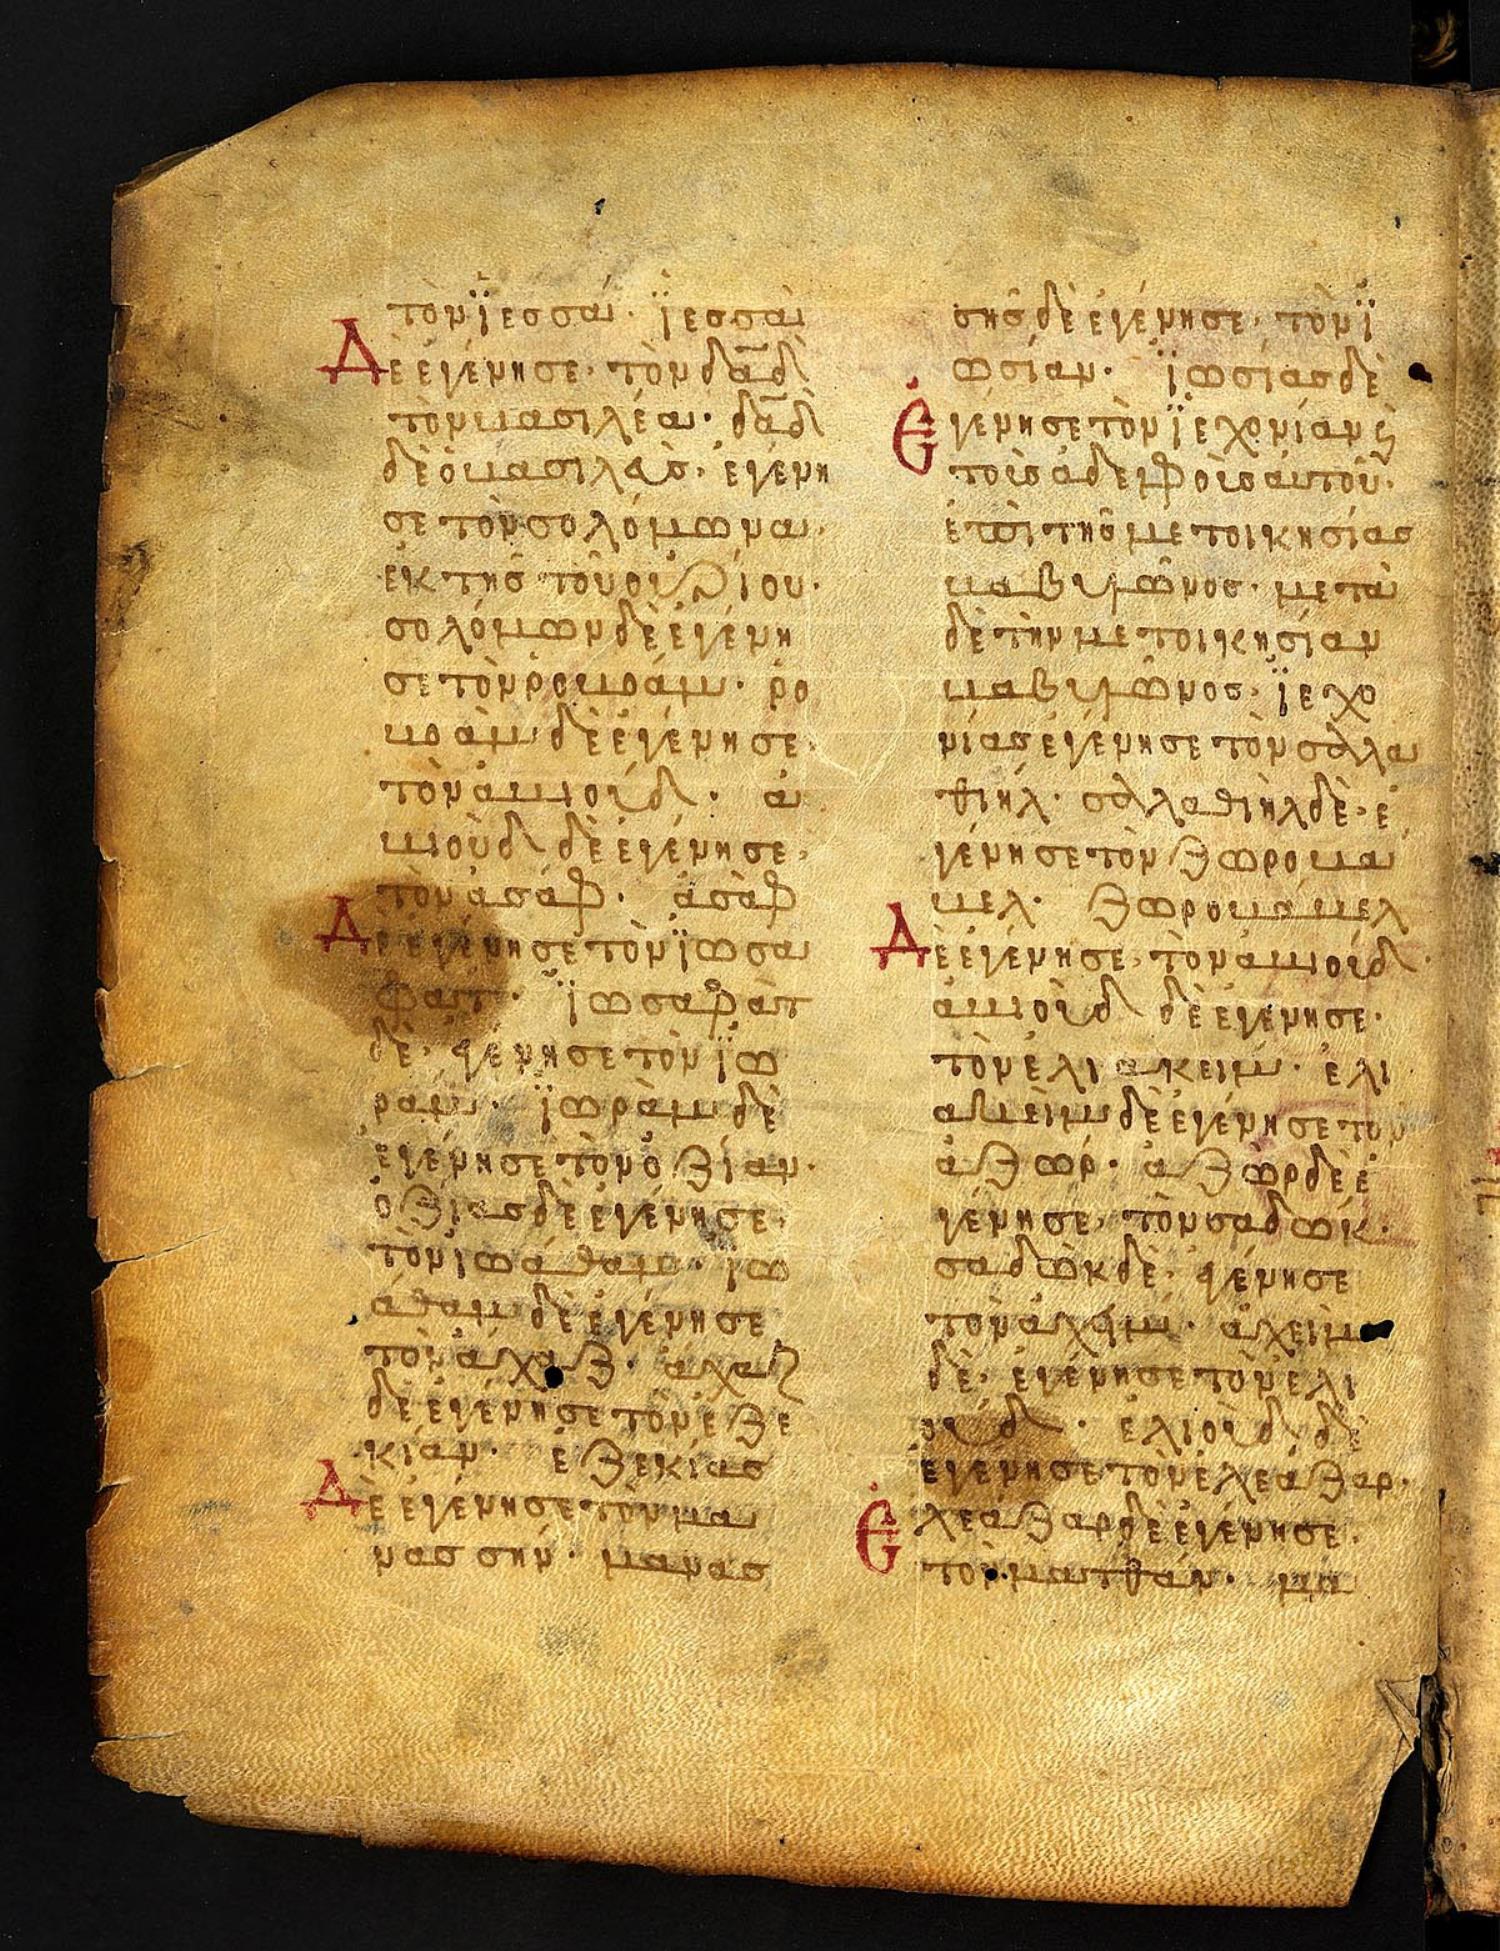 τὸν ϊεσσαί· ϊεσσαὶ
Δὲ ἐγέννησε· τὸν δα̅δ̅
τὸν βασιλέα· δα̅δ̅
δὲ ὁ βασιλεὺς· ἐγέννη
σε τὸν σολόμωνα·
ἐκ τῆς τοῦ οὐρίου·
σολόμων δὲ ἐγέννη
σε τὸν ῥοβοάμ· ῥο
βοὰμ δὲ ἐγέννησε·
τὸν ἀβιούδ· ἀ
βιοὺδ δὲ ἐγέννησε·
τὸν ἀσάφ· ἀσὰφ
Δὲ ἐγέννησε τὸν ϊωσα
φατ· ϊωσαφὰτ
δὲ· γέννησε τὸν ϊω
ραμ· ϊωρὰμ δὲ
ἐγέννησε τὸν ὀζίαν·
ὀζίας δὲ ἐγέννησε·
τὸν ἰωάθαμ· ἰω
άθαμ δὲ ἐγέννησε
τὸν ἄχαζ· ἄχαζ
δὲ ἐγέννησε τὸν ἐζε
κίαν· ἐζεκίας
Δὲ ἐγέννησε τὸν μα
νασσήν· μανασ
σῆς δὲ ἐγέννησε· τὸν ϊ
ωσίαν· ϊωσίας δὲ
Ἐγέννησε τὸν ϊεχονίαν ϗ
τοῖς ἀδελφοῖς αὐτοῦ·
ἐπὶ τῆς μετοικησίας
βαβυλῶνος· μετὰ
δὲ τὴν μετοικησίαν
βαβυλῶνος· ϊεχο
νίας ἐγέννησε τὸν σαλα
θιήλ· σαλαθιὴλ δὲ· ἐ
γέννησε τὸν ζωροβα
βελ· ζωροβάβελ
Δὲ ἐγέννησε· τὸν ἀβιούδ·
ἀβιοὺδ δὲ ἐγέννησε·
τὸν ἐλιακειμ· ἐλι
ακεὶμ δὲ ἐγέννησε τὸν
ἀζωρ· ἀζὼρ δὲ ἐ
γέννησε· τὸν σαδωκ·
σαδὼκ δὲ· γέννησε
τὸν ἀχείμ· ἀχεὶμ
δὲ· ἐγέννησε τὸν ἐλι
ούδ· ἐλιοὺδ δὲ
ἐγέννησε τὸν ἐλεάζαρ·
Ἐλεάζαρ δὲ ἐγέννησε·
τὸν ματθάν· μα